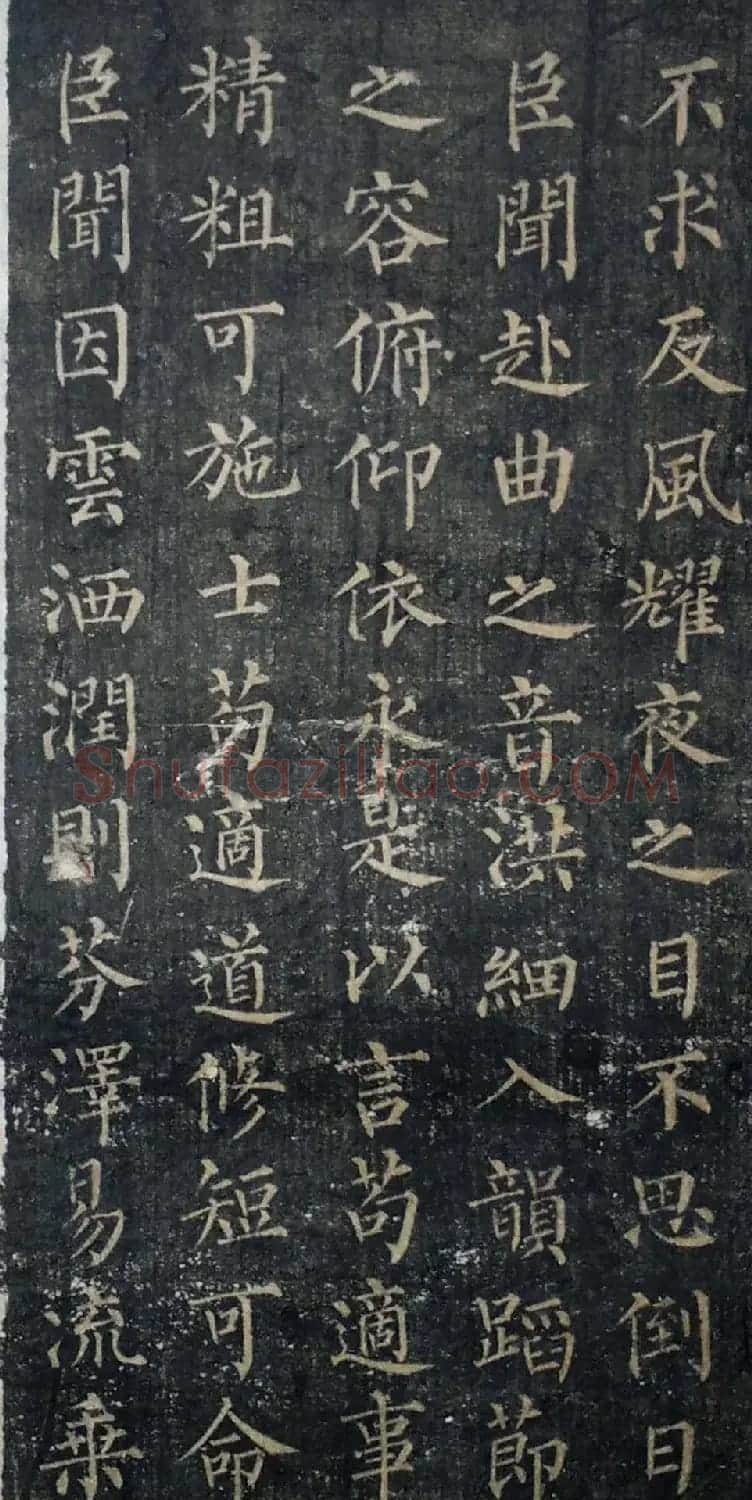 不求反風耀夜之目不思倒日
臣聞赴曲之音洪細入韻蹈節
之容俯仰依永是以言苟適事
精粗可施士苟適道修短可命
臣聞因雲洒潤則芬澤易流乗
Shufaziliao.COM